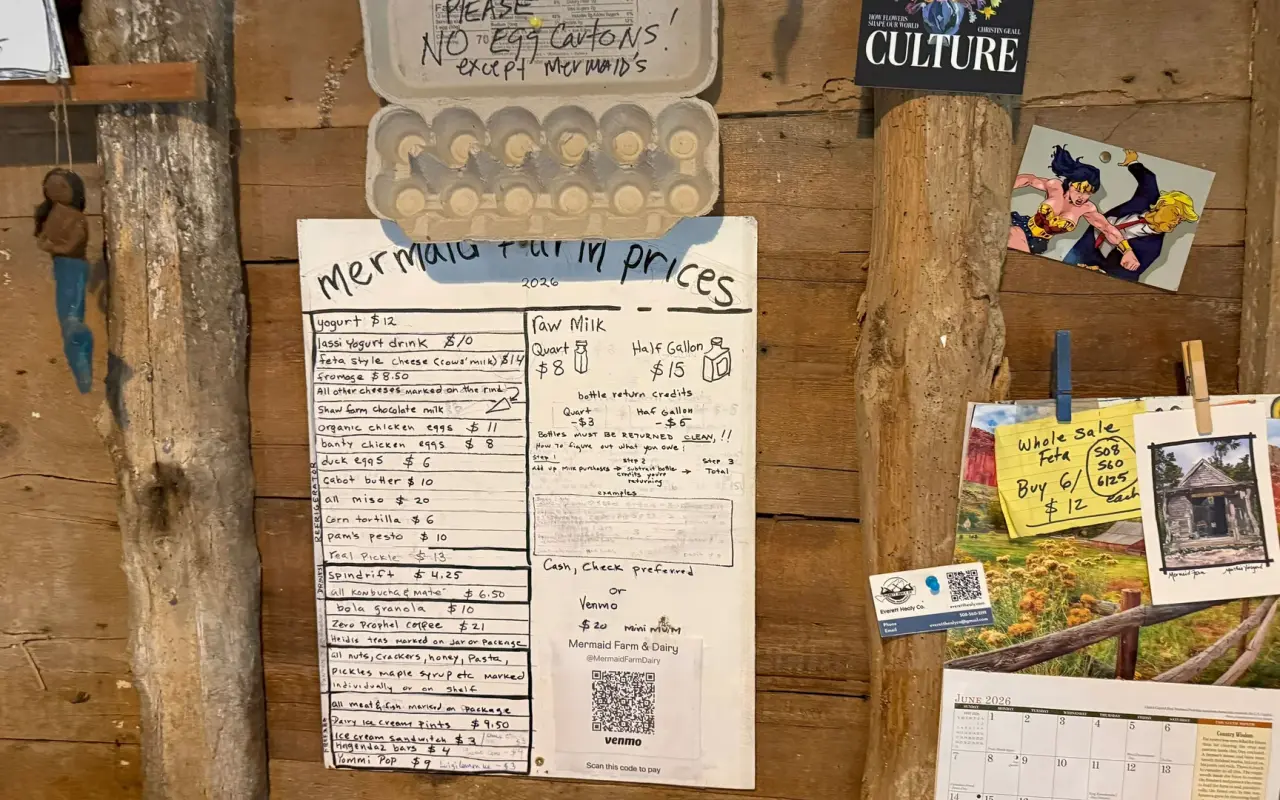 PLEASE
NO EGG CARTONS!
except MERMAID'S
mermaid Farm prices
2026
yogurt $12
lassi yogurt drink $10
feta style cheese (cows' milk) $14
fromage $8.50
All other cheeses marked on the rind
Shaw farm chocolate milk
organic chicken eggs $11
banty chicken eggs $8
duck eggs $6
Cabot butter $10
all miso $20
corn tortilla $6
pam's pesto $10
real Pickle $13
REFRIGERATOR
Spindrift $4.25
all Kombucha & mate $6.50
DRINKS
bola granola $10
Zero Prophet coffee $21
Heidis teas marked on Jar or Package
all nuts, crackers, honey, Pasta,
Pickles maple syrup etc marked
individually or on shelf
all meat & fish marked on package
Dairy ice cream Pints $9.50
Ice cream sandwitch $3
Hagendaz bars $4
Yommi Pop $9
raw Milk
Quart
$8
Half Gallon
$15
bottle return credits
Quart
-$3
Haf Gallon
-$6
Bottles MUST BE RETURNED CLEAN,!!
How to figure out what you owe:
Step 1
Add up milk purchases →
Step 2
subtract bottle credits you're returning →
Step 3
Total
examples
Cash, Check preferred
or
Venmo
$20 minimum
Mermaid Farm & Dairy
@MermaidFarmDairy
venmo
Scan this code to pay
HOW FLOWERS
SHAPE OUR WORLD
CHRISTIN GEALL
CULTURE
Whole Sale
Feta
Buy 6/
$12 each
508
560
6125
Mermaid Farm
Everett Healy Co.
Phone
Email
everetthealy.com
JUNE 2026
SUNDAY MONDAY TUESDAY WEDNESDAY THURSDAY FRIDAY SATURDAY
1 2 3 4 5 6
Country Wisdom
7 8 9 10 11 12 13
14 15